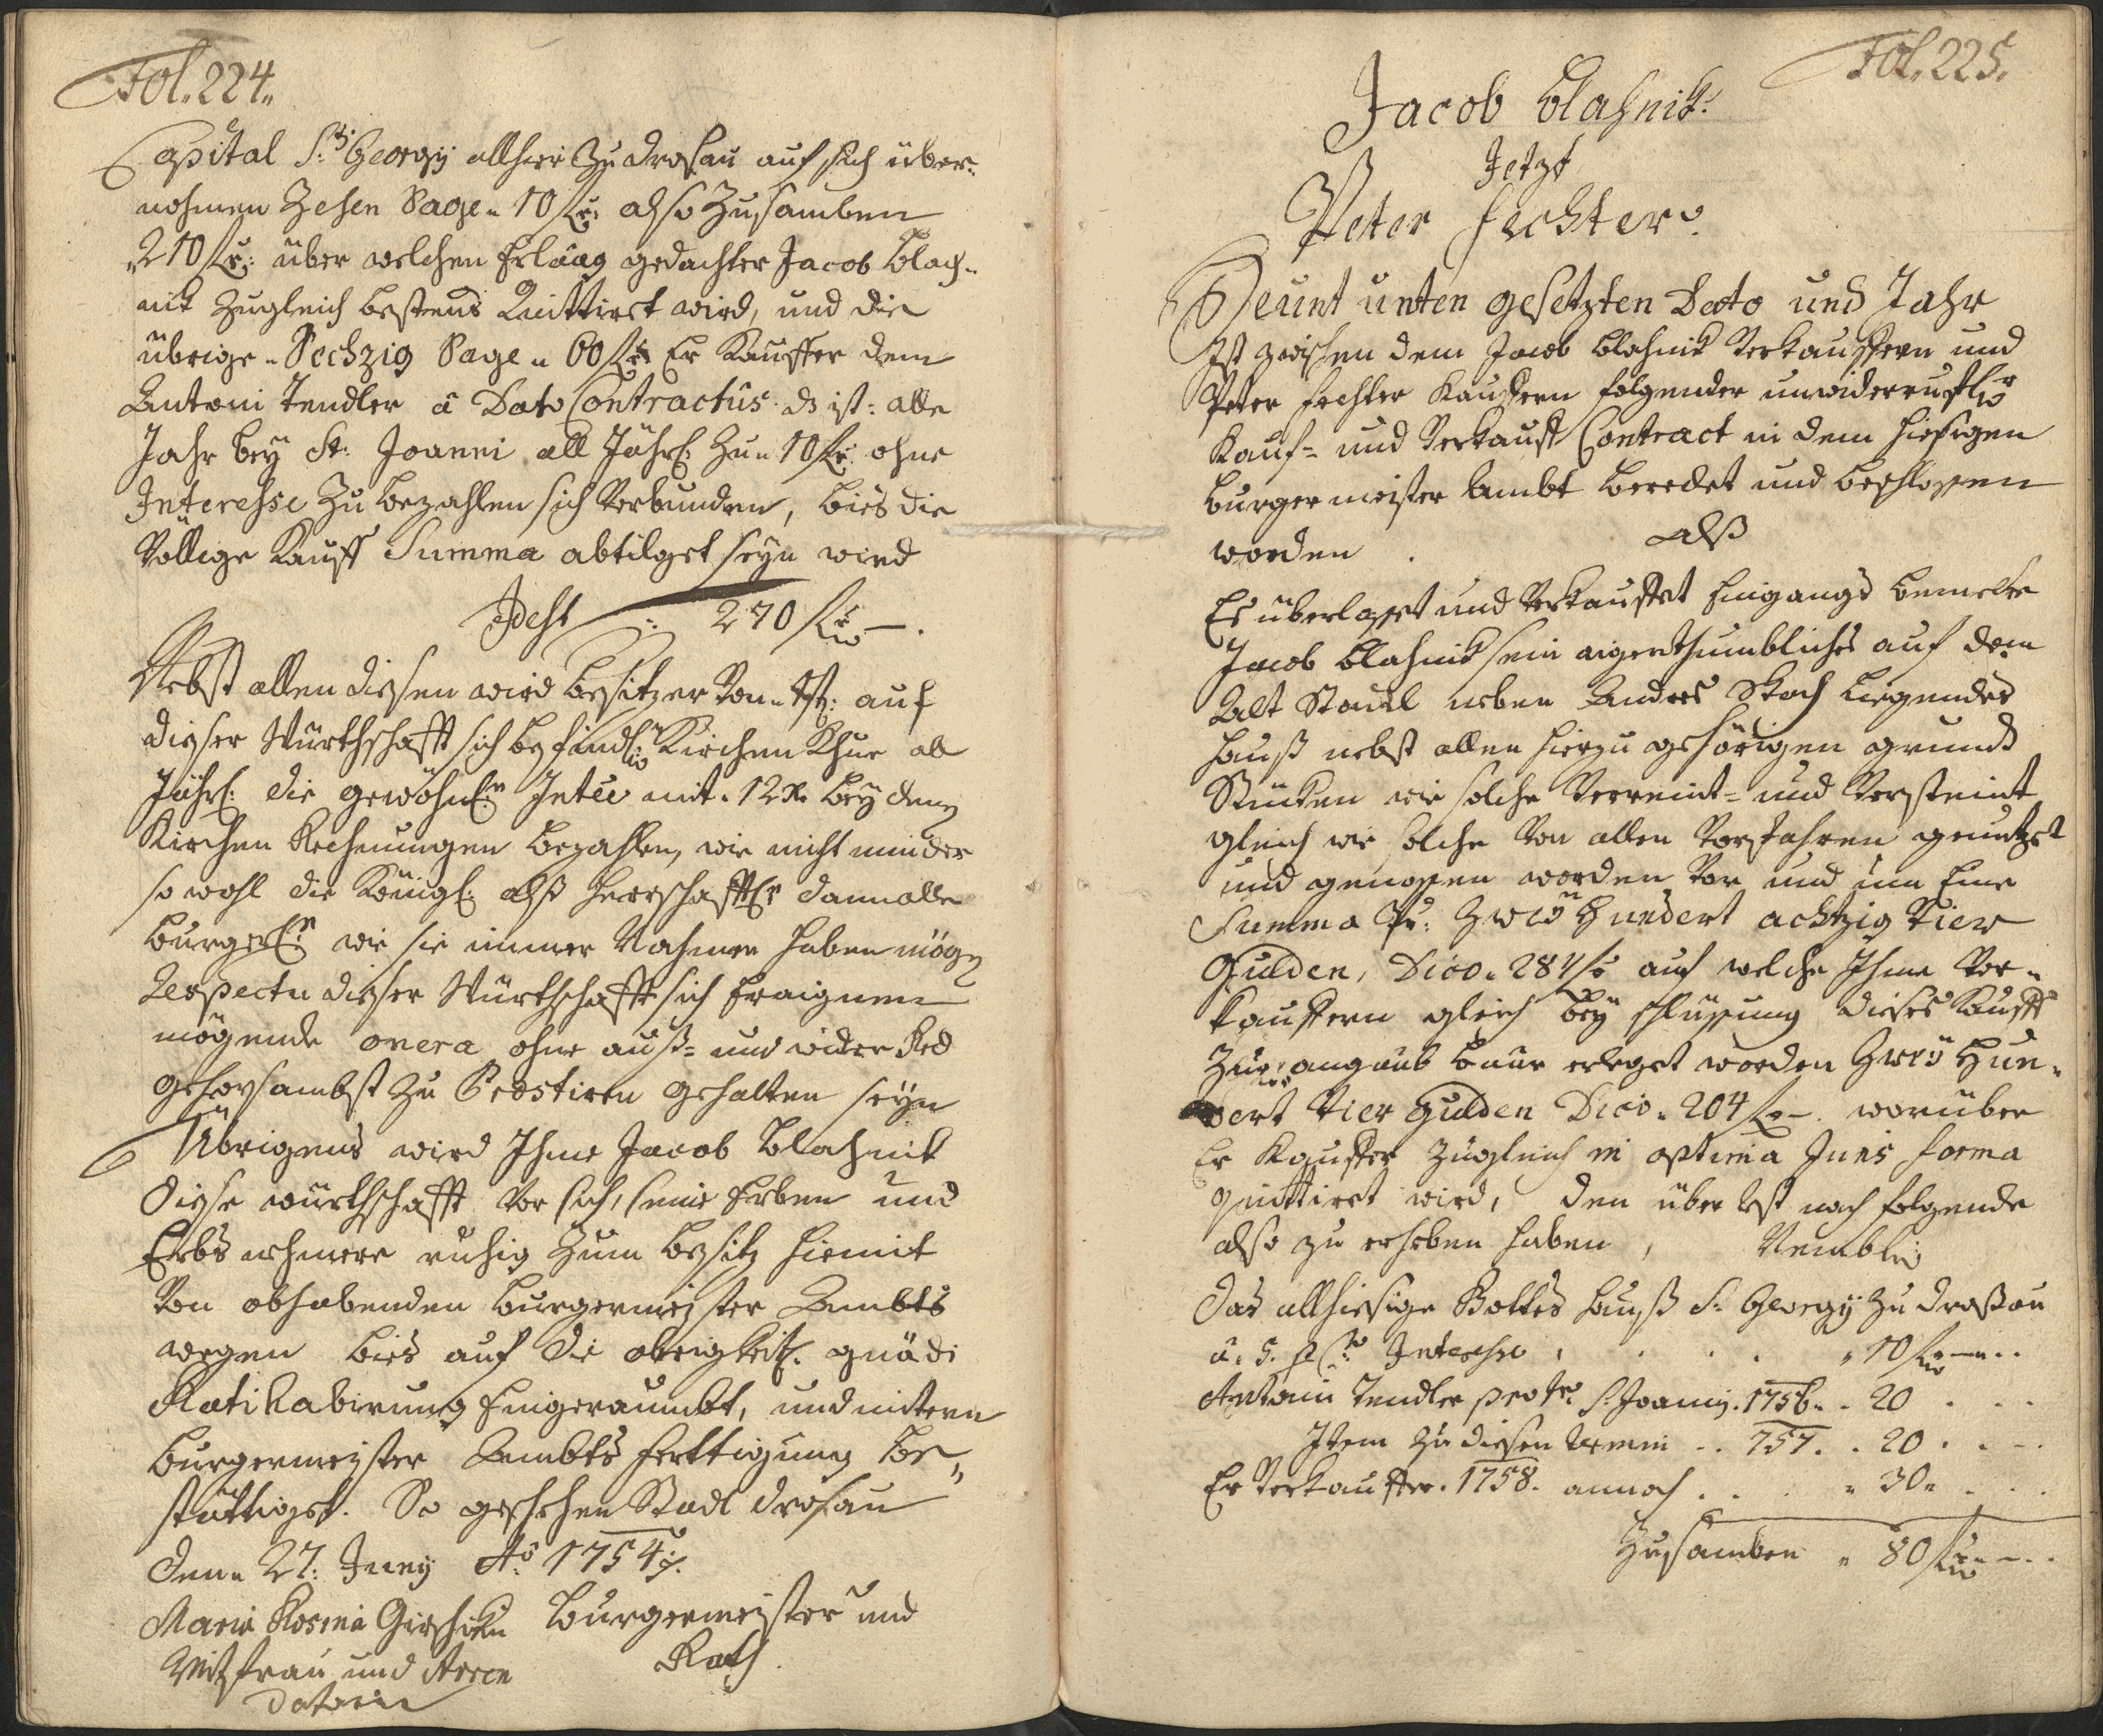 Fol. 224.
Capital S:ti Georgy allhier Zu Drosau auf sich über-
nohmen Zehen Sage. 10 fl: also Zusamben
210 fl: über welchen Erlaag gedachter Jacob Blach-
nik Zugleich bestens Quittiret wird, und die
übrige. Sechzig Sage. 60 fl: Er Kauffer dem
Antoni Tendler â Dato Contractus. ds ist: alle
Jahr beÿ St: Joanni all Jährl: Zu. 10 fl: ohne
Interehse Zu bezahlen sich Verbunden, bies die
Völlige Kauff Summa abtilget seÿn wird
Idest : 270 fl —.
Nebst allen diesen wird besitzer Von auf
dieser Würthschafft sich befindl: Kirchen Khue all
Jährl: die gewöhnl:n mit. 12 X. beÿ denen
Kirchen Rechnungen bezahlen, wie nicht minder
so wohl die Königl: alß herrschafftl: dann alle
burgerl:n wie sie immer Nahmen haben mögen
Respectu dieser Würthschafft sich Eraignen
mögende onera ohne auß= und wider Red
gehorsambst Zu Praestiren gehalten seÿn
Übrigens wird Ihme Jacob Blachnik
diese würthschafft vor sich, seine Erben und
Erbs nehmere ruhig Zum besitz hiemit
Von obhabenden burgermeister Ambts
wegen bies auf die obrigkeitl. gnädi
Ratihabirung Eingeraumbt, und mittern
burgermeister Ambts ferttigung be„
stättiget. So geschehen Stadl Drosau
den. 27: Juny Ao: 1754
Maria Rosina
burgermeister und
Rath
frau und Arren
datorin
Fol. 225.
Jacob Blahnik.
Jetzt
Peter Fechter.
Heunt unten gesetzten Dato und Jahr
Ist zwischen dem Jacob Blahnik Verkauffern und
Peter Fechter Kauffern folgender unwiderrufl:r
Kauf= und Verkauff Contract in dem hiesigen
burgermeister Ambt beredet und beschlossen
worden . Alß
Es überlasset und Verkauffet Eingangs bemelte
Jacob Blahnik sein aigenthumbliches auf dem
Alt Stadl neben Andres Skach liegendes
hauß nebst allen hierzu gehörigen grundt
Stucken wie solche Verreint= und Versteint
gleich wie solche Von allen Vorfahren genutzet
und genossen worden Vor und um Eine
Summa Pr: Zweÿ Hundert achtzig Vier
Gulden, Dico. 284 f auf welche Ihme Ver„
kauffern gleich beÿ schlüssung dieses Kauffs
Zur angaab baar erleget worden Zweÿ Hun„
dert Vier Gulden Dico. 204 f —. worüber
Er Kauffer Zugleich in optima Juris forma
quittiret wird, den über Rest nach folgende
also zu erheben haben , Nembl:
das allhiesige Gottes hauß S: Georgÿ Zu Drosau
â. 5. p C:to Interehse . . . . 10 f — . .
Antoni Tendler pro S: Joanny. 1756. . 20 . . .
Item Zu diesen termin . . 757. . 20 . . .
Er Verkauffer. 1758. annoch . . . 30. . . .
Zusamben . 80 f — . .